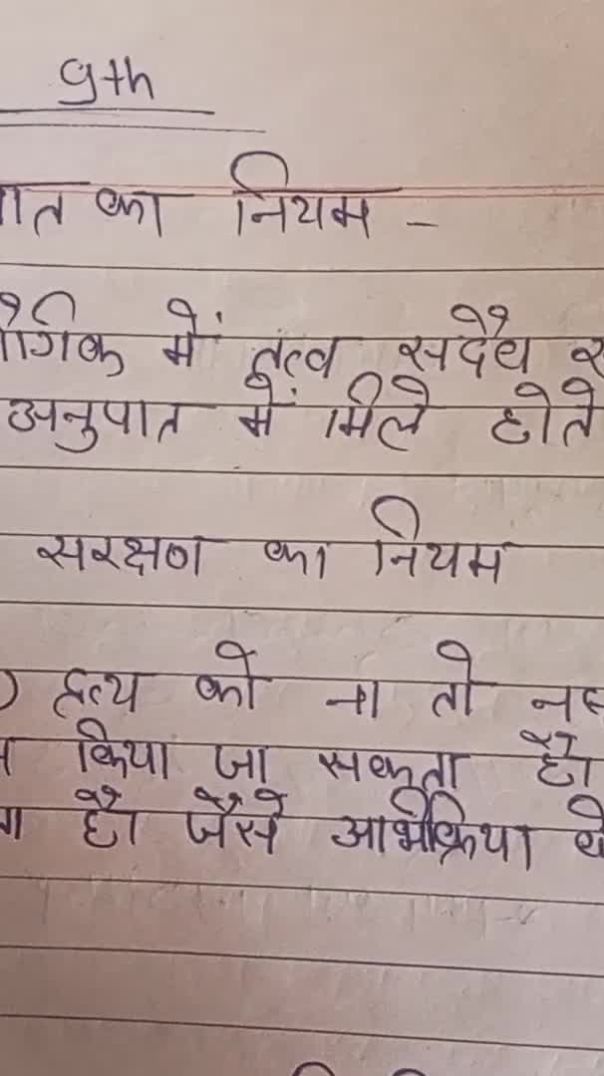 9th
ात का नियम -
ौगिक में तत्व सदैव
अनुपात में मिले होते
सरक्षण का नियम
द्रव्य को ना तो
किया जा सकता है।
है। जैसे अभिक्रिया